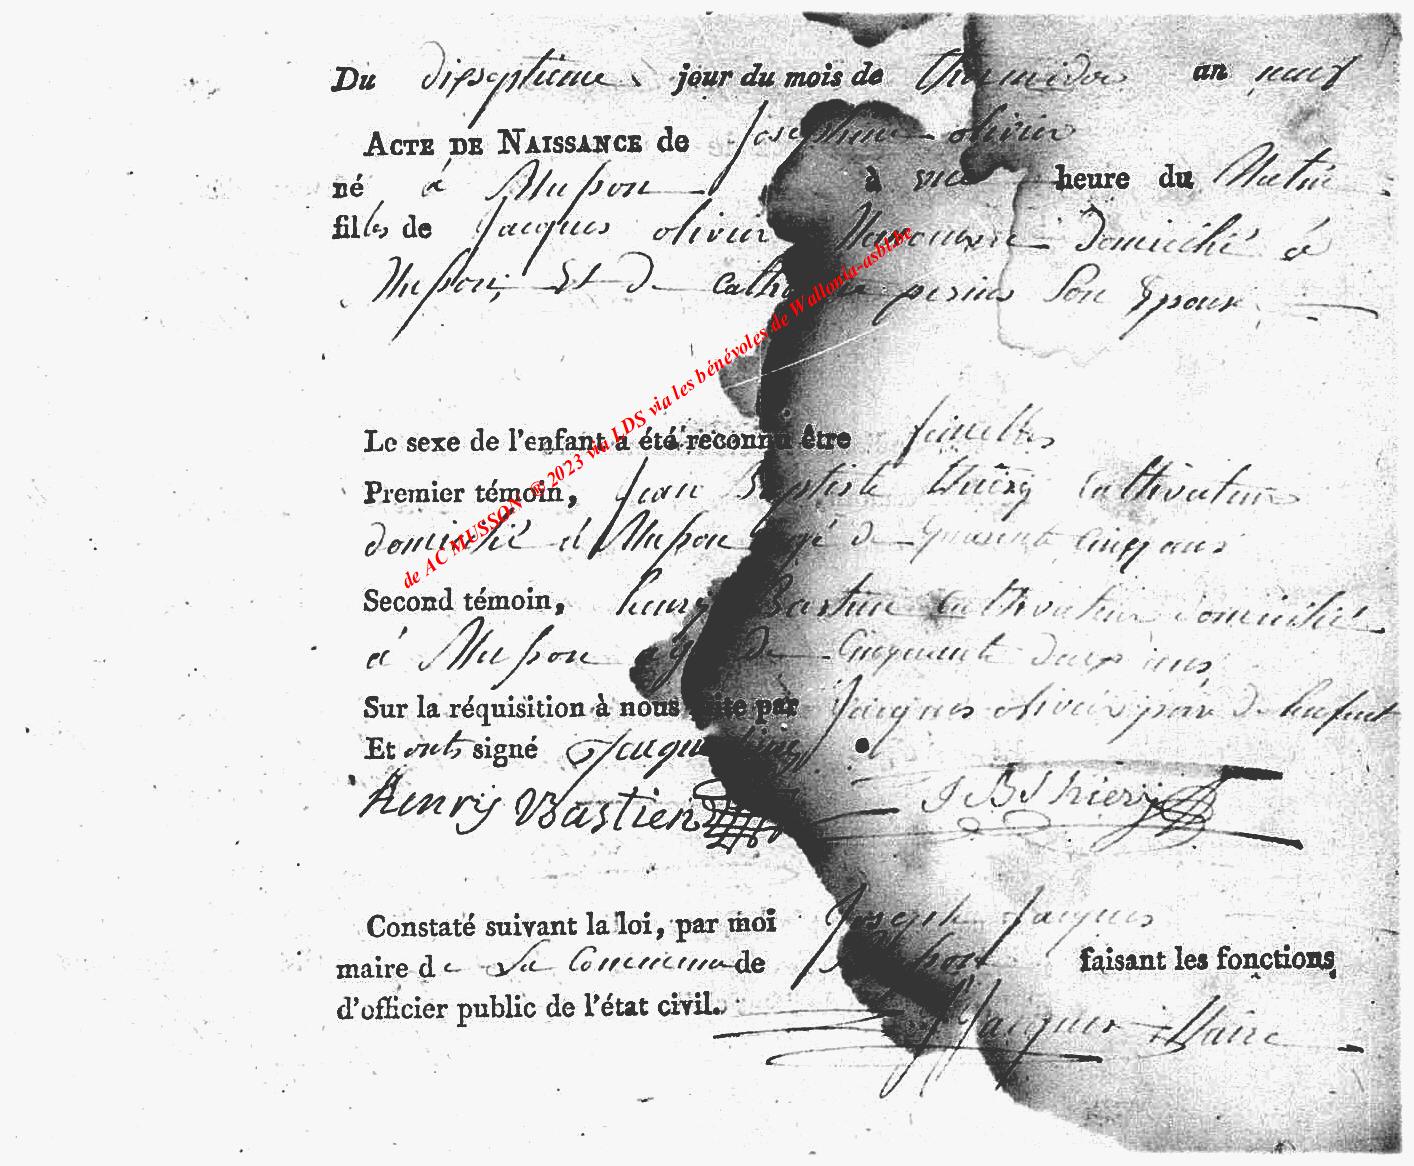 Du dixseptieme jour du mois de thermidor an neuf
ACTE DE NAISSANCE de Josephine olivier
né à Musson à une heure du Matin
filles de Jacques olivier Manouvre Domicilié à
Musson, Et De Catherine perin Son Epouse
Le sexe de l'enfant a été reconnu être femelles
Premier témoin, Jean Baptiste thiery Cultivateur
domicilié à Musson agé de quarent Cinq ans
Second témoin, henry Bastien Cultivateur domicilié
à Musson agé de Cinquante deux ans
Sur la réquisition à nous faite par Jacques olivier père de lenfant
Et onts signé Jacque
Henry Bastien J B Thiery
Constaté suivant la loi, par moi Joseph Jacques
maire de La Commune de Musson faisant les fonctions
d'officier public de l'état civil.
J Jacques Maire
de AC MUSSON @ 2023 via LDS via les bénévoles de Wallonia-asbl.be